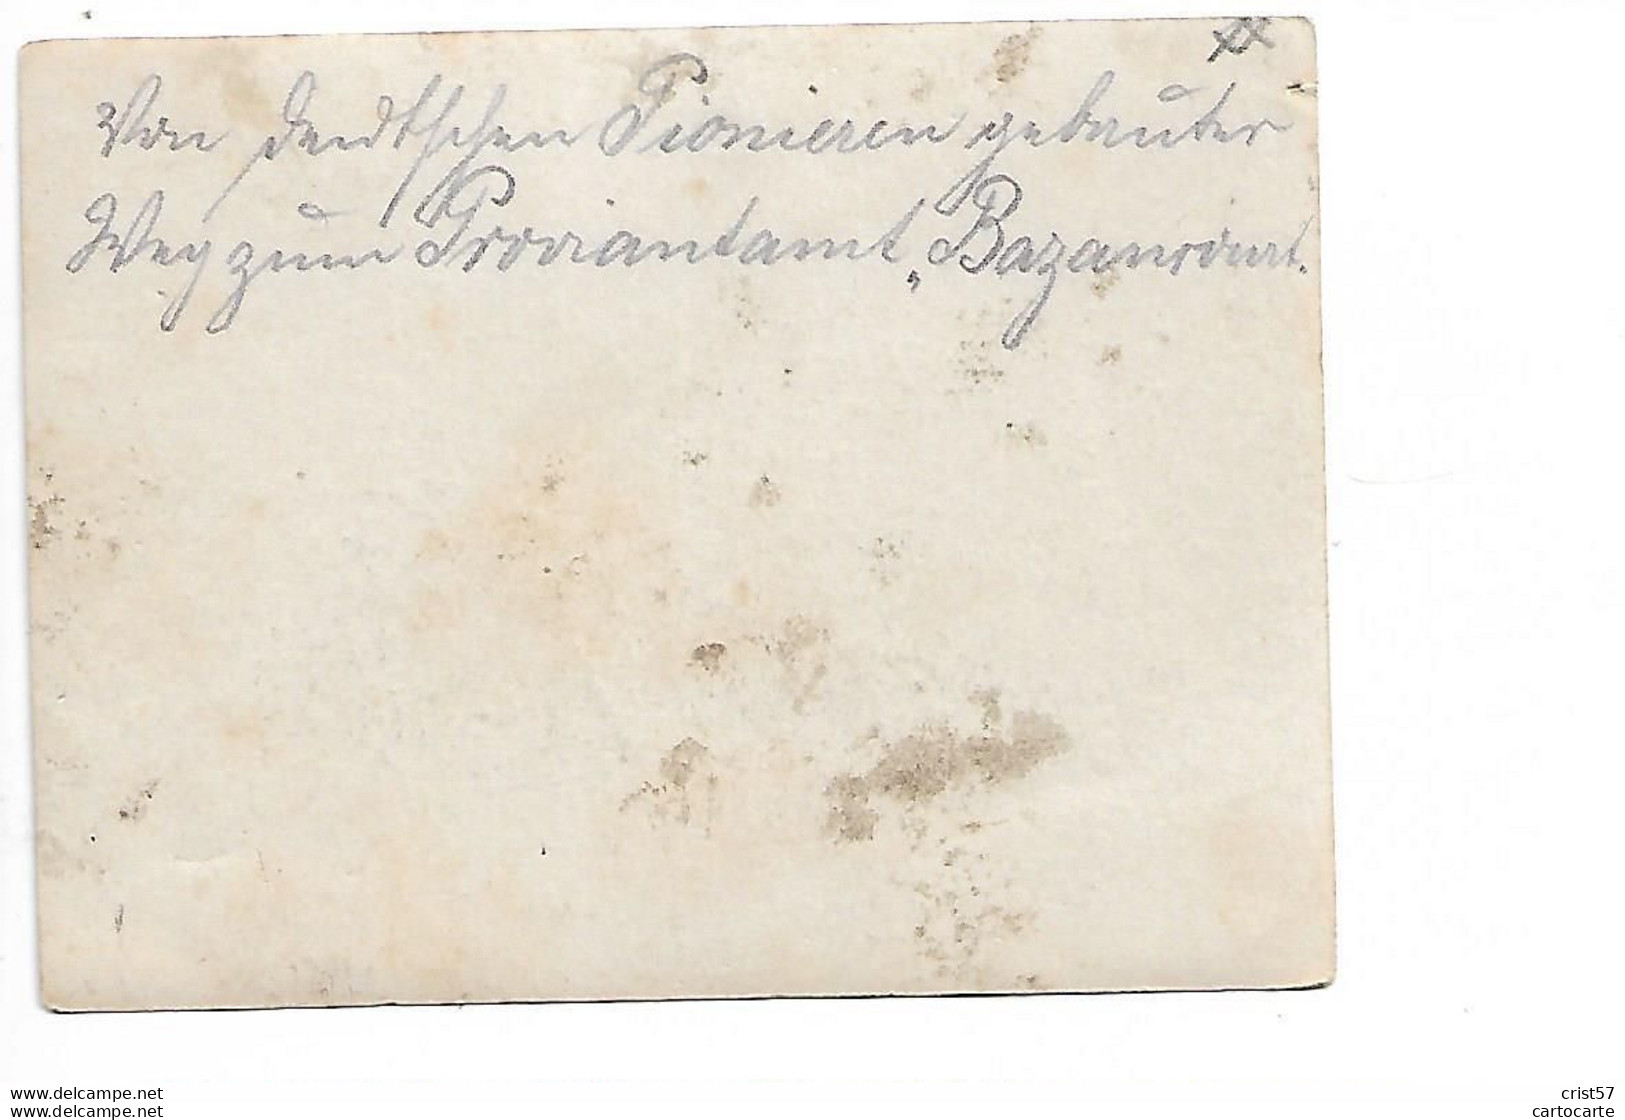 xx
Von deutschen Pionieren gebauter
Weg zum Proviantamt „Bazancourt.
www.delcampe.net
crist57
www.delcampe.net
cartocarte